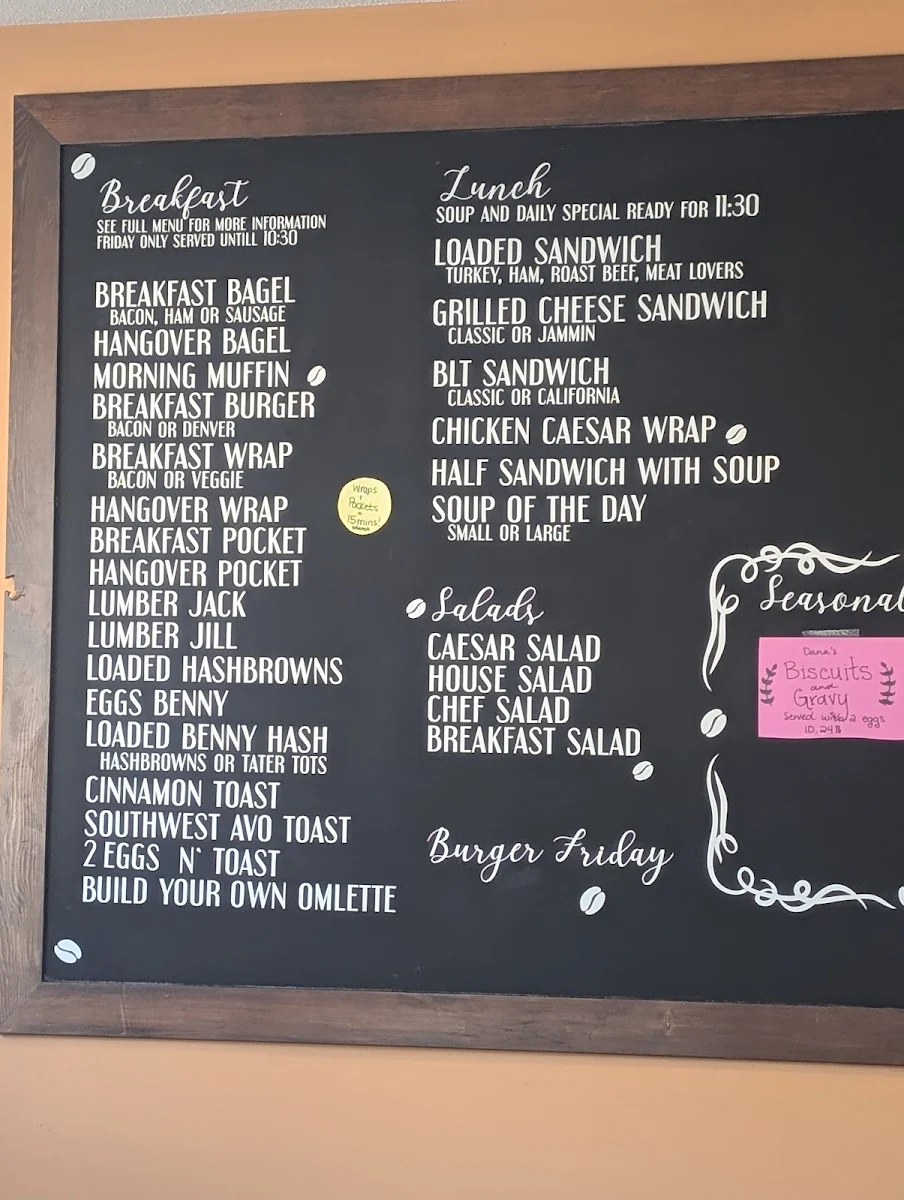 Breakfast
SEE FULL MENU FOR MORE INFORMATION
FRIDAY ONLY SERVED UNTILL 10:30
BREAKFAST BAGEL
BACON, HAM OR SAUSAGE
HANGOVER BAGEL
MORNING MUFFIN
BREAKFAST BURGER
BACON OR DENVER
BREAKFAST WRAP
BACON OR VEGGIE
HANGOVER WRAP
BREAKFAST POCKET
HANGOVER POCKET
LUMBER JACK
LUMBER JILL
LOADED HASHBROWNS
EGGS BENNY
LOADED BENNY HASH
HASHBROWNS OR TATER TOTS
CINNAMON TOAST
SOUTHWEST AVO TOAST
2 EGGS N' TOAST
BUILD YOUR OWN OMLETTE
Wraps
Pockets
15mins!
Lunch
SOUP AND DAILY SPECIAL READY FOR 11:30
LOADED SANDWICH
TURKEY, HAM, ROAST BEEF, MEAT LOVERS
GRILLED CHEESE SANDWICH
CLASSIC OR JAMMIN
BLT SANDWICH
CLASSIC OR CALIFORNIA
CHICKEN CAESAR WRAP
HALF SANDWICH WITH SOUP
SOUP OF THE DAY
SMALL OR LARGE
Salads
CAESAR SALAD
HOUSE SALAD
CHEF SALAD
BREAKFAST SALAD
Burger Friday
Seasonal
Dana's
Biscuits
and
Gravy
Served with 2 eggs
10.24$